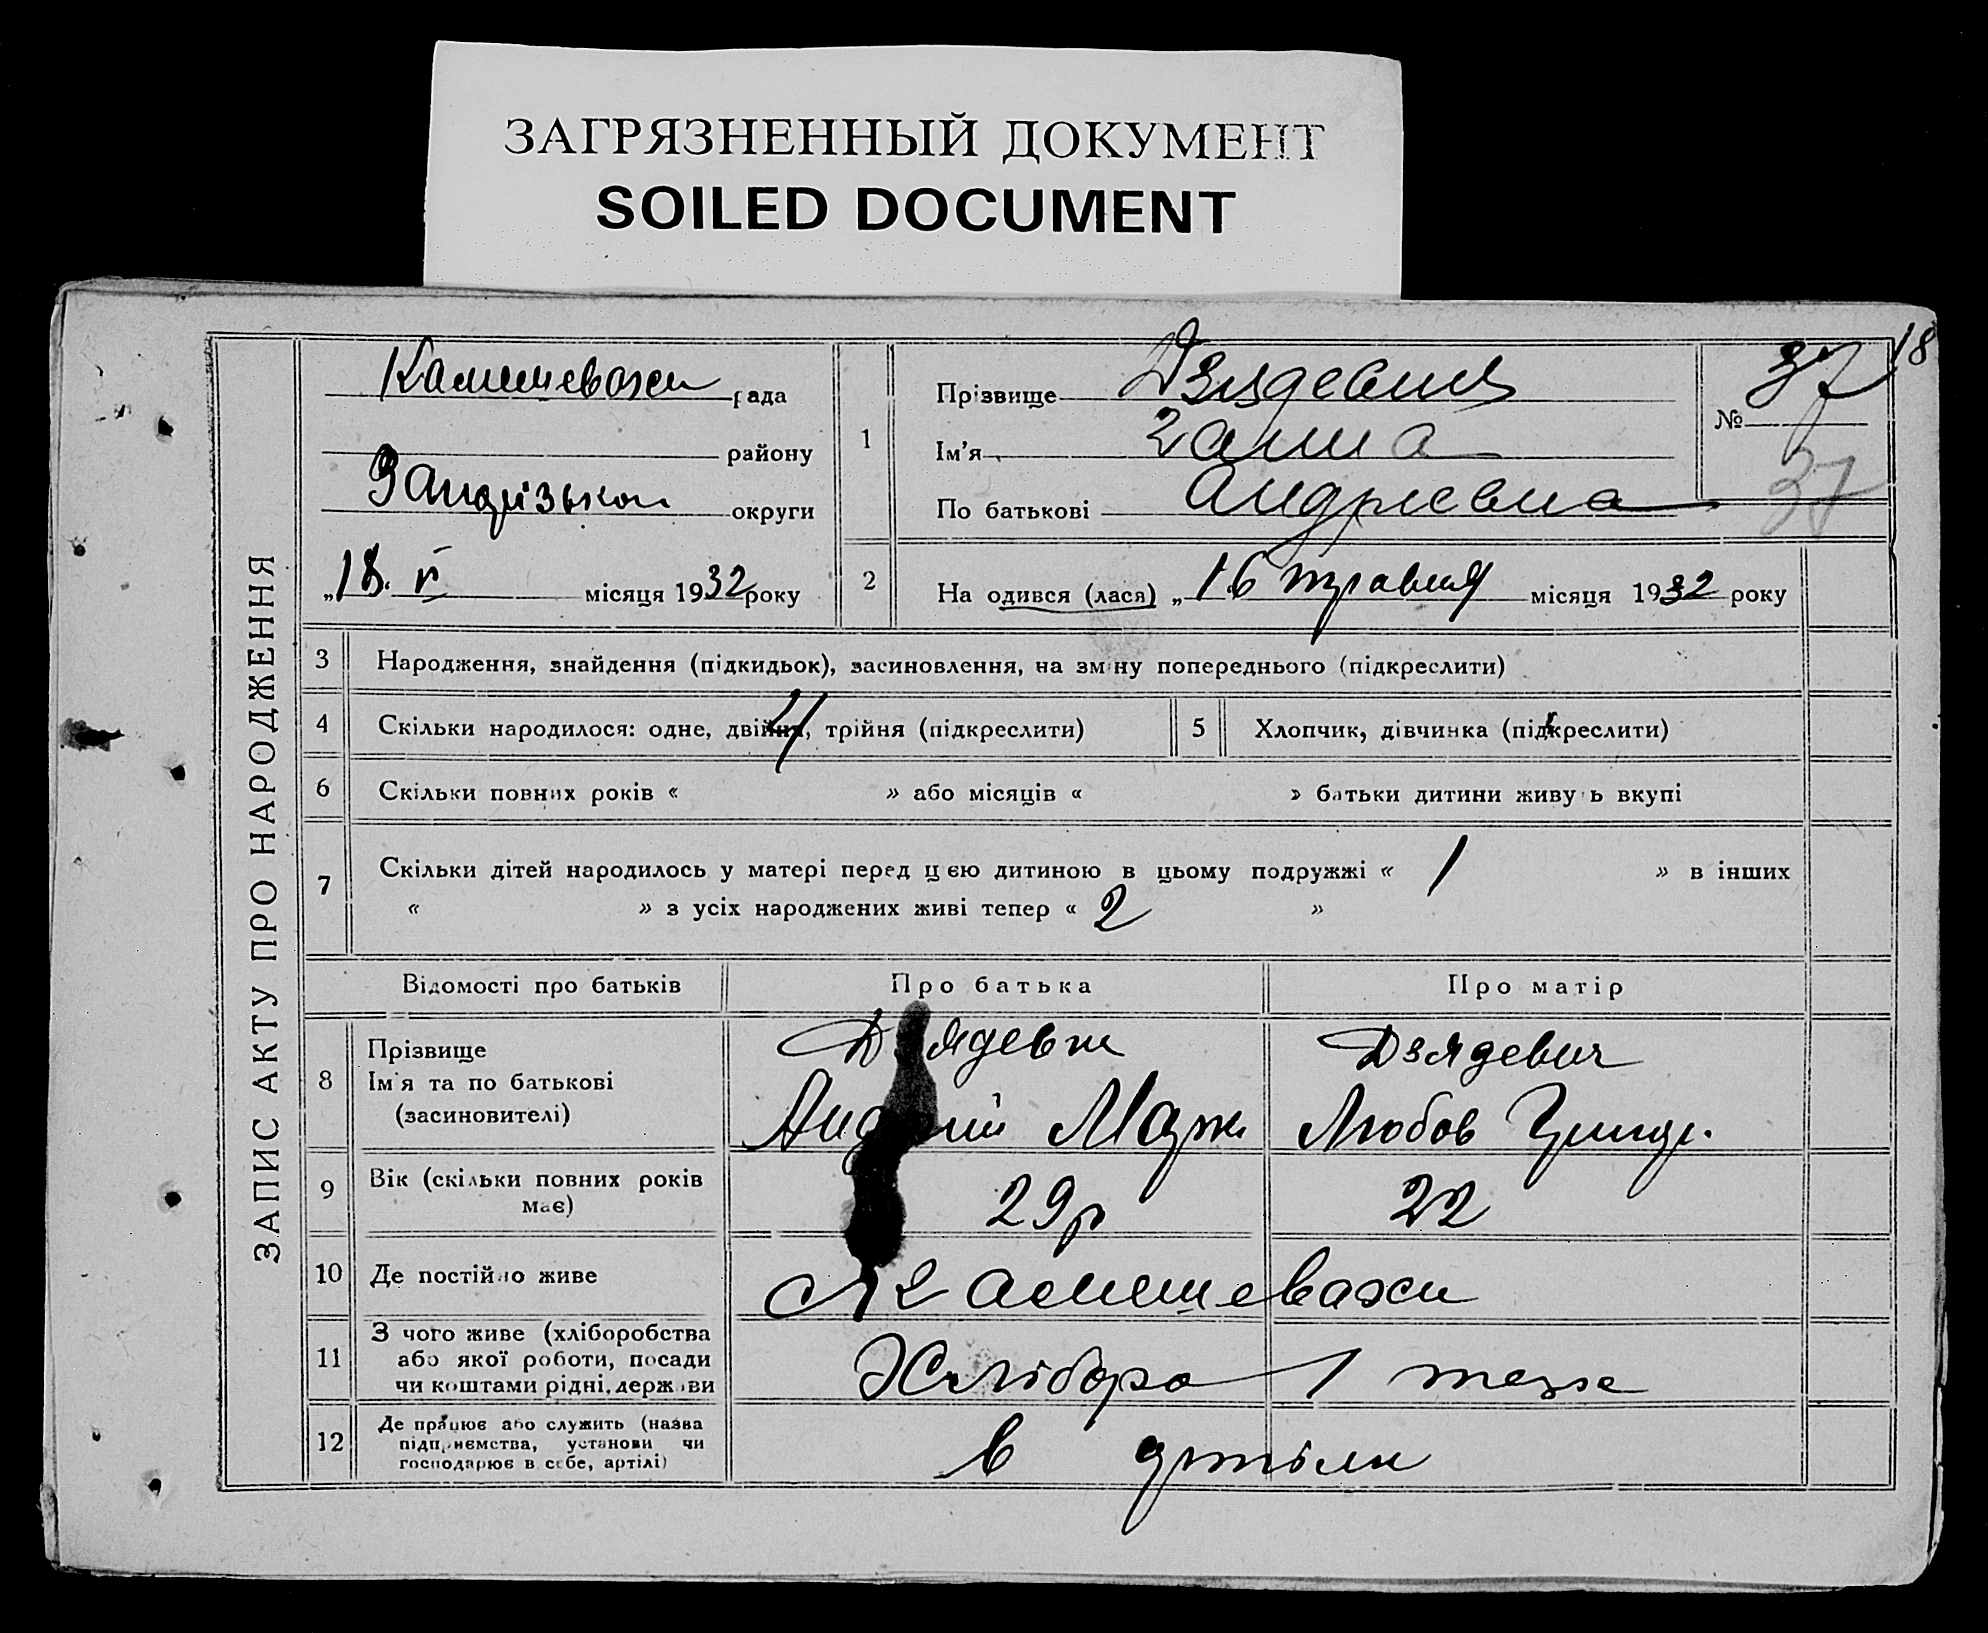 ЗАГРЯЗНЕННЫЙ ДОКУМЕНТ
SOILED DOCUMENT
18
ЗАПИС АКТУ ПРО НАРОДЖЕННЯ
Камишеваха рада
району
округи
„18. V місяця 1932 року
1
Прізвище
Ім'я Ганна
По батькові Андріевна
№ 37
37
2
На одився (лася) „16 травня місяця 1932 року
3
Народження, знайдення (підкидьок), засиновлення, на зміну попереднього (підкреслити)
4
Скільки народилося: одне, двійня, трійня (підкреслити)
5
Хлопчик, дівчинка (підкреслити)
6
Скільки повних років « » або місяців « » батьки дитини живуть вкупі
7
Скільки дітей народилось у матері перед цією дитиною в цьому подружжі « 1 » в інших
« » з усіх народжених живі тепер « 2 »
Відомості про батьків
Про батька
Про матір
8
Прізвище
Ім'я та по батькові
(засиновителі)
Дзядевич
Андрій
Дзядевич
Любов Григ.
9
Вік (скільки повних років
має)
29р
22
10
Де постійно живе
Камишеваха
11
З чого живе (хліборобства
або якої роботи, посади
чи коштами рідні, держави
Хлібороб
теж
12
Де працює або служить (назва
підприємства, установи чи
господарює в себе, артілі)
в артіли